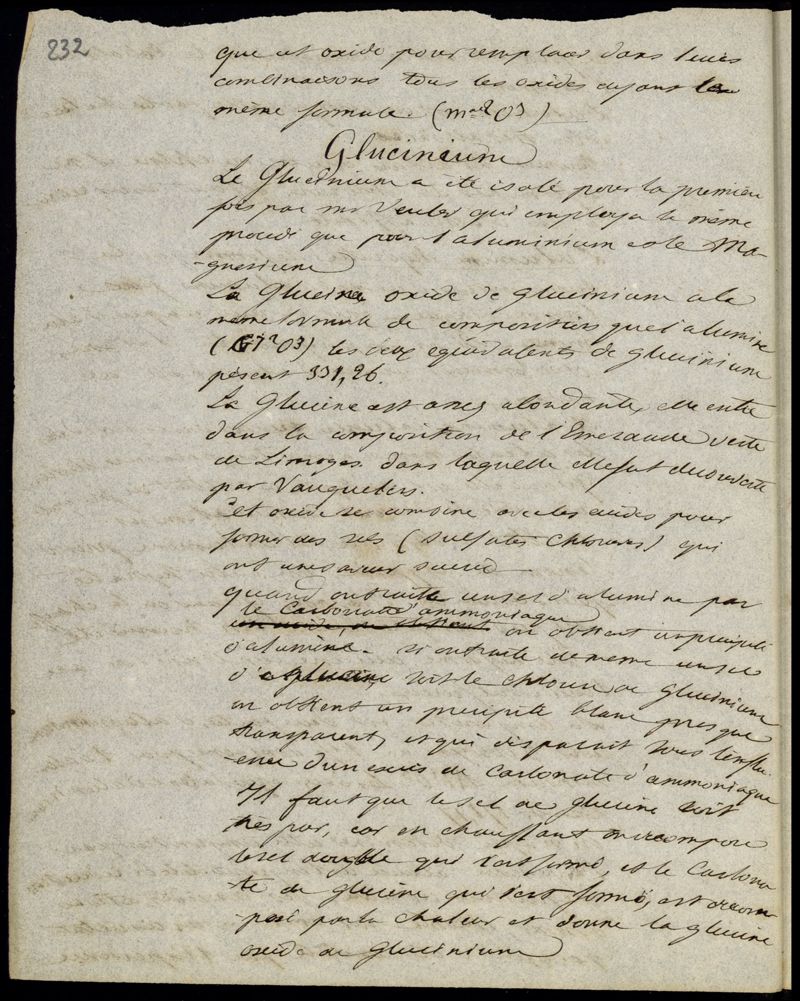 232
que cet oxide pour remplacer dans leurs
combinaisons tous les oxides ayant la
même formule. (m²O3)
Glucinium
Le Glucinium a été isolé pour la première
fois par mr qui employa le même
procédé que pour l'aluminium et le Ma-
-gnesium
La Glucine oxide de glucinium a la
meme formule de composition que l'alumine
(Gl²O3) les deux équivalents de glucinium
pèsent 331,26.
La Glucine est assez abondante, elle entre
dans la composition de l'Emeraude verte
de Limoges. dans laquelle elle fut découverte
par Vauquelin.
Cet oxide se combine avec les acides pour
former des sels (sulfates Chlorures) qui
ont une saveur sucrée
quand on traite un sel d'alumine par
le Carbonate d'ammoniaque
on obtient un précipité
d'alumine. si on traite de meme un sel
de glucine, soit le chlorure de Glucinium
on obtient un précipité blanc presque
transparent, et qui disparait sous l'influ-
-ence d'un excès de Carbonate d'ammoniaque
Il faut que le sel de glucine soit
très pur, car en chauffant on décompose
le sel double qui s'est formé, et le Carbona
-te de glucine qui s'est formé, est decom-
-posé par la chaleur et donne la glucine
oxide de Glucinium